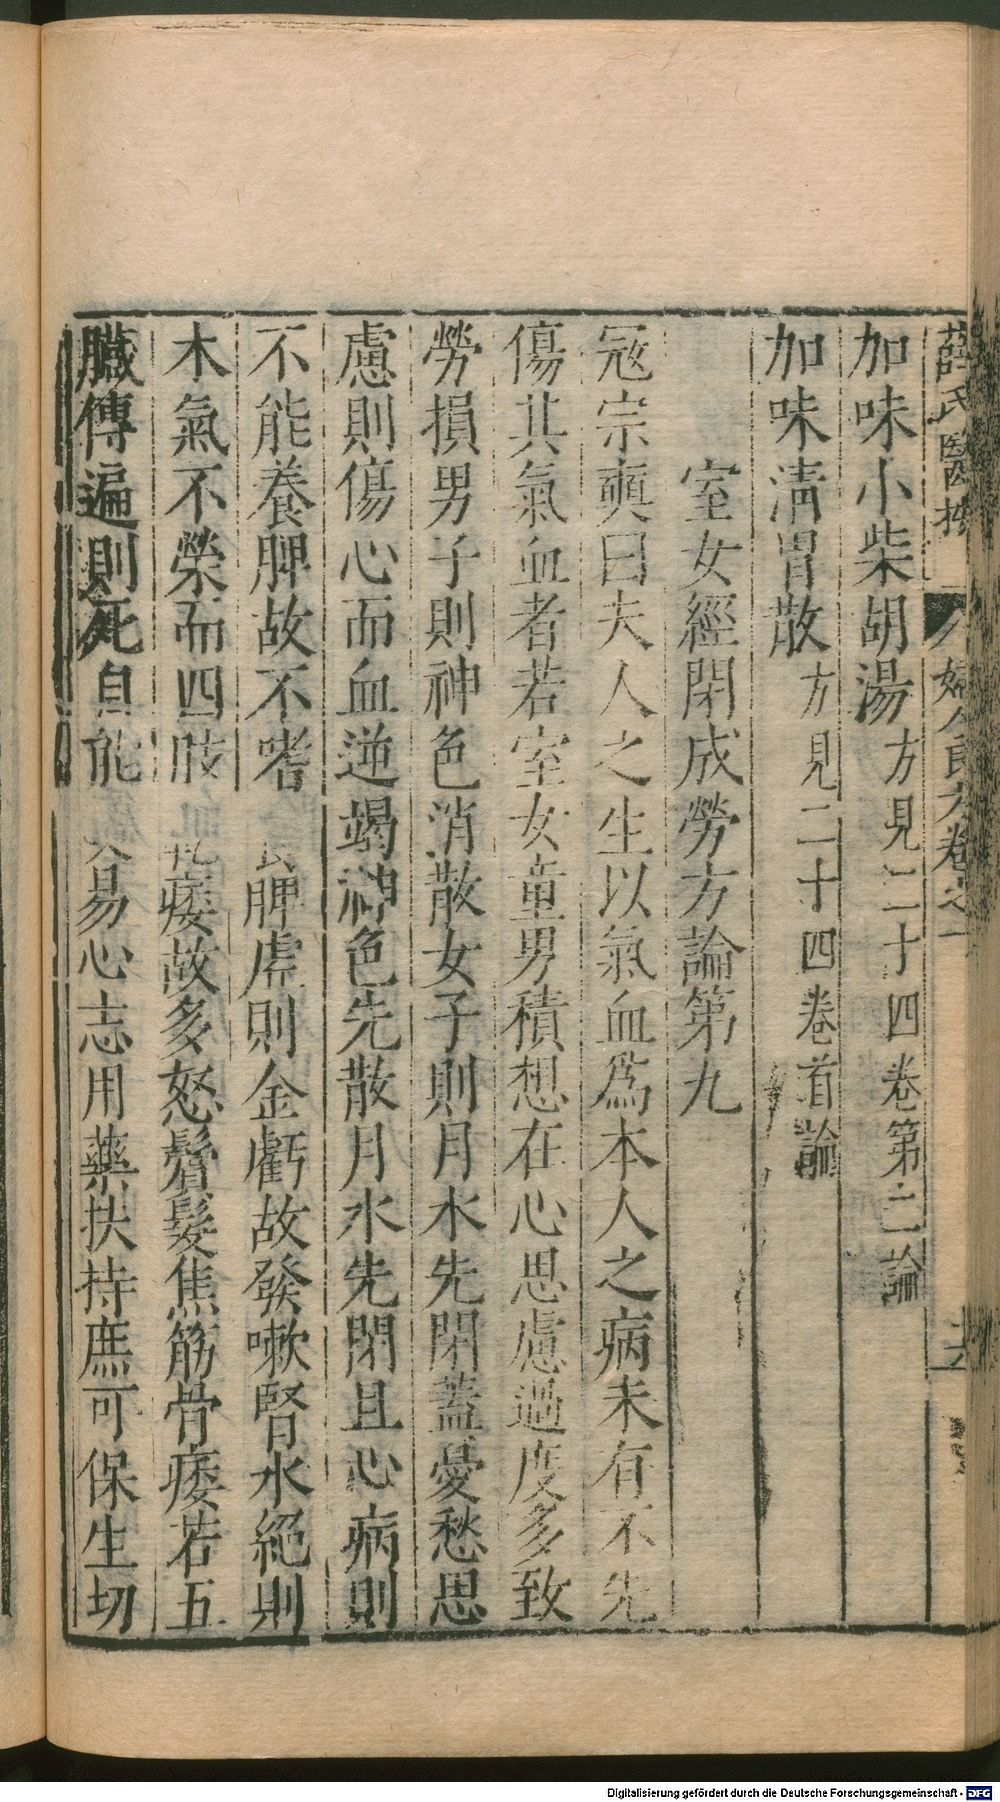 薛氏醫按 婦人良方卷之一
加味小柴胡湯方見二十四卷第二論
加味清胃散方見二十四卷首論
室女經閉成勞方論第九
宼宗奭曰夫人之生以氣血爲本人之病未有不先
傷其氣血者若室女童男積想在心思慮過度多致
勞損男子則神色消散女子則月水先閉蓋憂愁思
慮則傷心而血逆竭神色先散月水先閉且心病則
不能養脾故不嗜 脾虛則金虧故發嗽腎水絕則
木氣不榮而四肢 痿故多怒鬢髮焦筋骨痿若五
臟傳遍則死自能 易心志用藥扶持庶可保生切
Digitalisierung gefördert durch die Deutsche Forschungsgemeinschaft - DFG